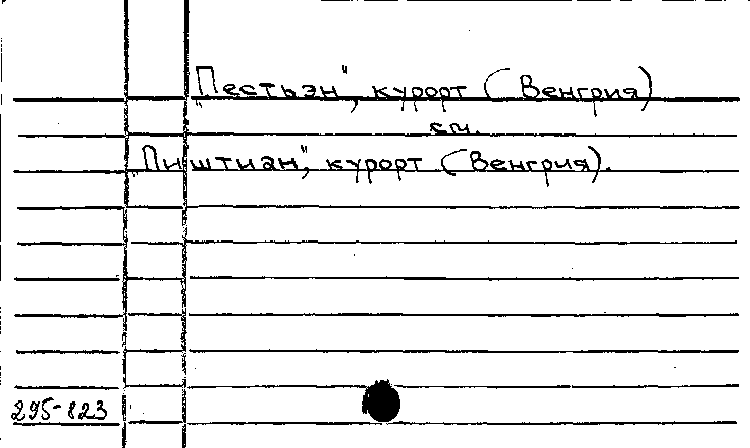 „Пестьэн", курорт (Венгрия)
см.
„Пиштиан", курорт (Венгрия).
295-823